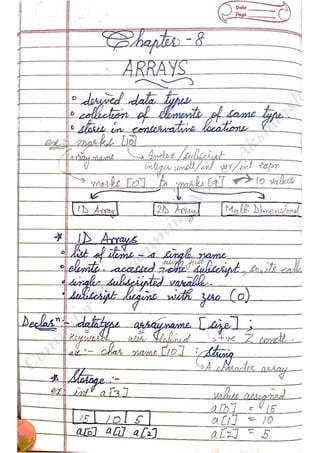 Date
Page
Chapter - 8
ARRAYS
• derived data types
• collection of elements of same type
• stores in conservative locations
ex:- marks [10]
array name Index/subscript
integer const/int var/int expn
marks [0] to marks [9] → 10 values
1D Array 2D Array Multi Dimensional
* 1D Arrays
• list of items - a single name
• elmts. accessed using one subscript, so, its calls
• single subscripted variable.
• subscript begins with zero (0)
Declarⁿ:- datatype arrayname [size] ;
keyword user defined +ve Z const.
ex:- char name [10] ; string
A character array.
* Storage :-
ex int a[3] values assigned
a[0] = 15
15 10 5 a[1] = 10
a[0] a[1] a[2] a[2] = 5